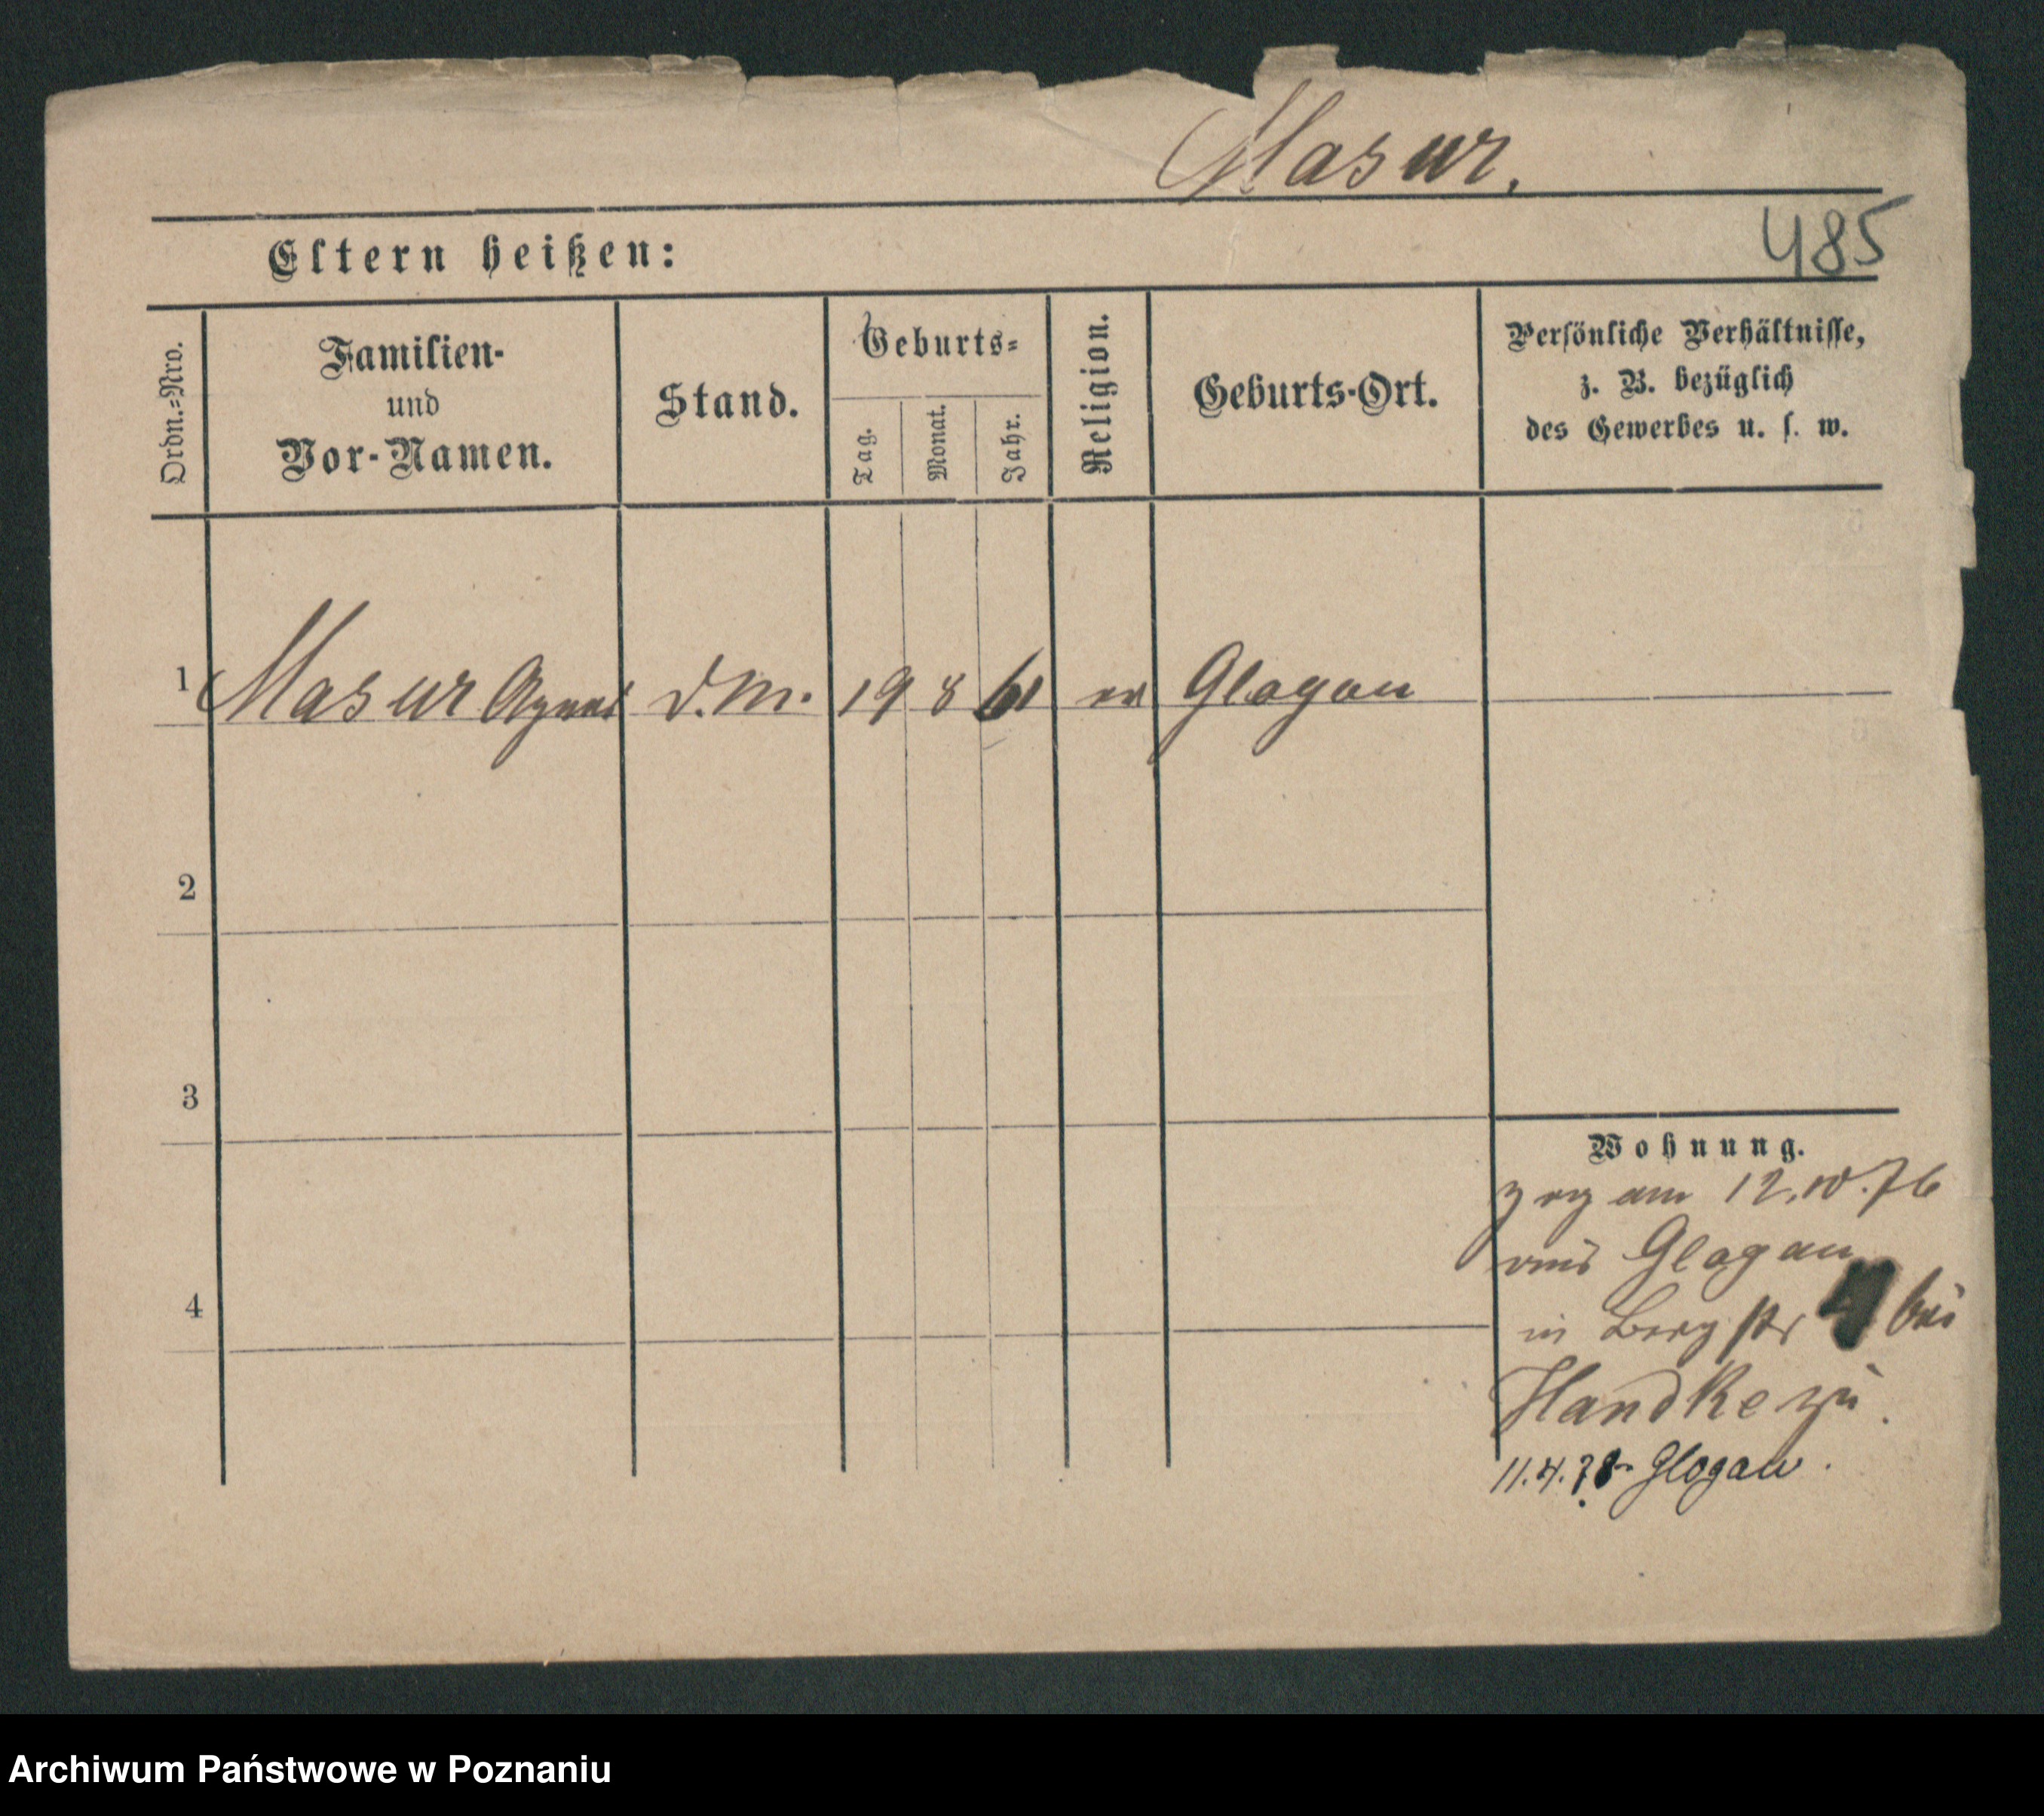 Masur.
485
Eltern heißen:
Ordn.=Nro.
Familien-
und
Vor-Namen.
Stand.
Geburts=
Tag.
Monat.
Jahr.
Religion.
Geburts-Ort.
Persönliche Verhältnisse,
z. B. bezüglich
des Gewerbes u. s. w.
1 Masur Agnes d. M. 19 8 61 ev Glogau
2
3
4
Wohnung.
zog am 12.10.76
aus Glogau
in Berg str 4 bei
Handke zu.
11.4.78 Glogau.
Archiwum Państwowe w Poznaniu